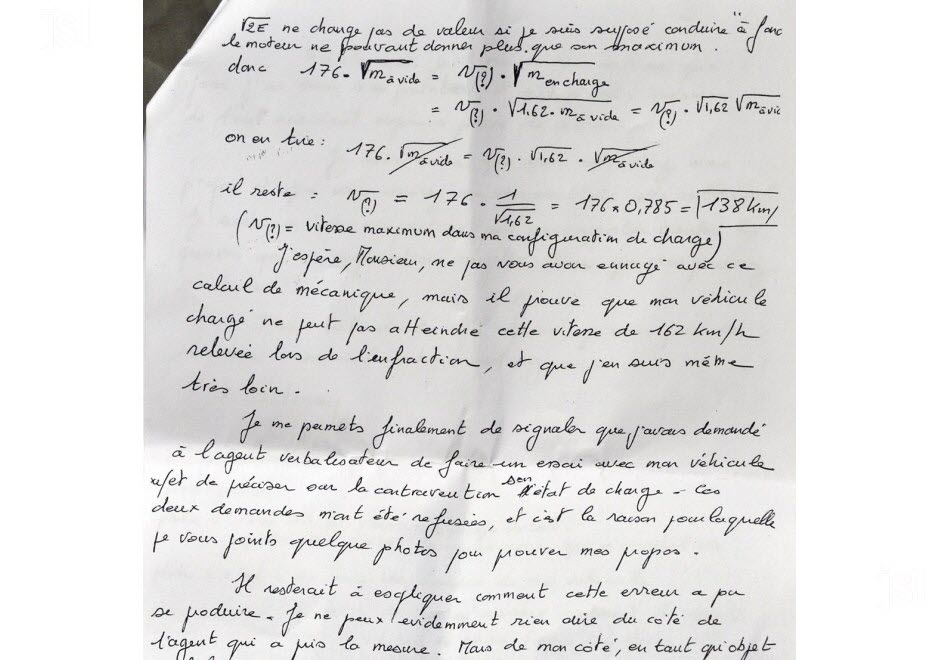 √2E ne change pas de valeur si je suis supposé conduire "à fond
le moteur ne pouvant donner plus que son maximum.
donc 176 · √m à vide = V(?) · √m en charge
= V(?) · √1,62 · m à vide = V(?) · √1,62 √m à vi
on en tire : 176 · √m à vide = V(?) · √1,62 · √m à vide
il reste : V(?) = 176 · 1/√1,62 = 176 × 0,785 = 138 km/
(V(?) = vitesse maximum dans ma configuration de charge)
J'espère, Monsieur, ne pas vous avoir ennuyé avec ce
calcul de mécanique, mais il prouve que mon véhicule
chargé ne peut pas atteindre cette vitesse de 162 km/h
relevée lors de l'infraction, et que j'en suis même
très loin.
Je me permets finalement de signaler que j'avais demandé
à l'agent verbalisateur de faire un essai avec mon véhicule
et de préciser sur la contravention son état de charge - Ces
deux demandes m'ont été refusées, et c'est la raison pour laquelle
je vous joints quelque photos pour prouver mes propos.
Il resterait à expliquer comment cette erreur a pu
se produire. Je ne peux évidemment rien dire du côté de
l'agent qui a pris la mesure. Mais de mon côté, en tant qu'objet